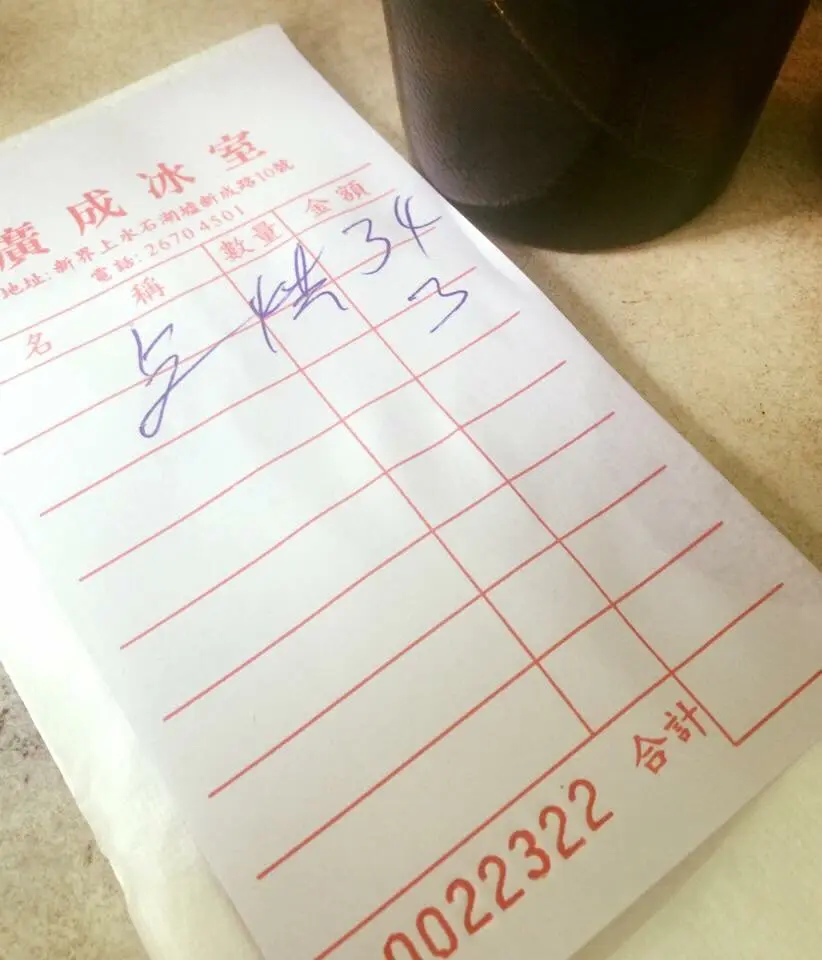 廣成冰室
地址: 新界上水石湖墟新成路10號
電話: 2670 4501
名稱 數量 金額
烘 34
3
合計
0022322